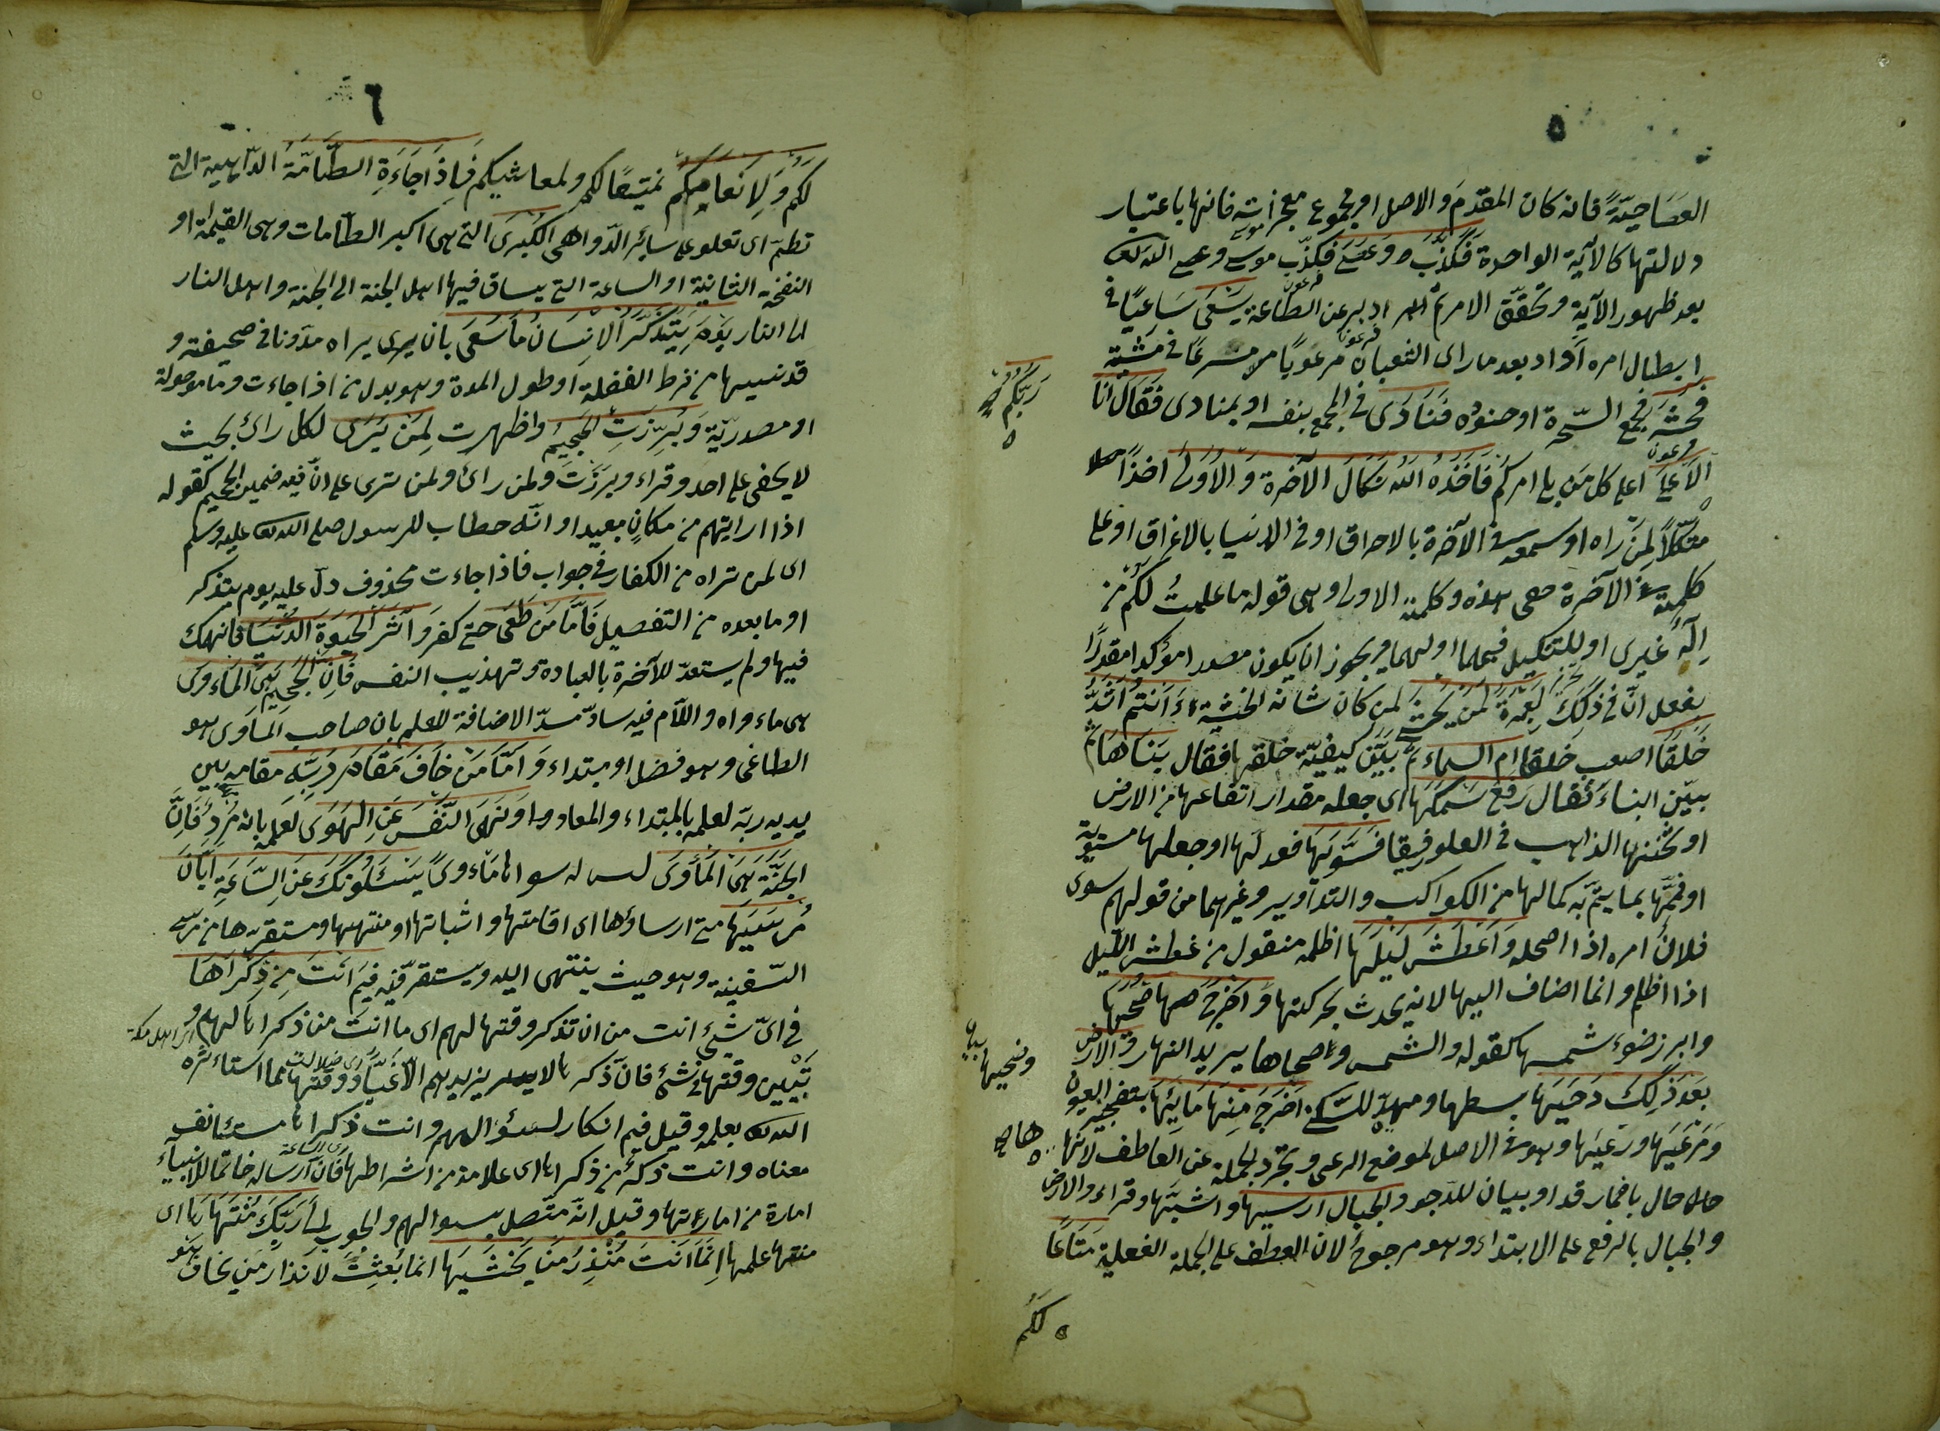 ٥
العصا حيّةً فانه كان المقدم والاصل او مجموع معجزاته فانها باعتبار
دلالتها كالآية الواحدة فَكَذَّبَ وَعَصَى فكذّب موسى وعصى الله تعالى
بعد ظهور الآية وتحقق الامر ثُمَّ أَدْبَرَ عن الطاعة يَسْعَى ساعيًا في
ابطال امره او ادبر بعد ما رأى الثعبان مرعوبًا مسرعًا في مشيه
فَحَشَرَ فجمع السحرة او جنوده فَنَادَى في المجمع بنفسه او بمنادى فَقَالَ أَنَا
رَبُّكُمُ
الأَعْلَى اعلى كل من يلي امركم فَأَخَذَهُ اللَّهُ نَكَالَ الآخِرَةِ وَالأُولَى اخذًا
منكّلًا لمن رآه او سمعه في الآخرة بالاحراق او في الدنيا بالاغراق او على
كلمته الآخرة وهي هذه وكلمته الاولى وهي قوله ما علمتُ لكم من
اله غيرى او للتنكيل فيهما او لهما ويجوز ان يكون مصدرا مؤكدا مقدرًا
بفعله إِنَّ فِي ذَلِكَ لَعِبْرَةً لِمَن يَخْشَى لمن كان شانه الخشية أَأَنْتُمْ أَشَدُّ
خَلْقًا اصعب خلقا أَمِ السَّمَاءُ ثم بيّن كيفيّة خلقها فقال بَنَاهَا ثم
بيّن البناء فقال رَفَعَ سَمْكَهَا اى جعل مقدار ارتفاعها من الارض
او ثخنها الذاهب في العلو رفيعًا فَسَوَّيهَا فعدلها او جعلها مستوية
او فتممها بما يتمّ به كمالها من الكواكب والتداوير وغيرهما من قولهم سوى
فلان امره اذا اصلحه وَأَغْطَشَ لَيْلَهَا اظلمه منقول من غطش الليل
اذا اظلم وانما اضاف اليها لانه يحدث بحركتها وَأَخْرَجَ ضُحَيهَا
وابرز ضوء شمسها كقوله والشمس وضحاها يريد النهار وَالأَرْضَ
بَعْدَ ذَلِكَ دَحَيهَا بسطها ومهدها للسكنى أَخْرَجَ مِنْهَا مَاءَهَا بتفجير العيون
وَمَرْعَيهَا ورعيها وهو في الاصل لموضع الرعى وتجريد الجملة عن العاطف لانها
حال باضمار قد او بيان للدحو وَالْجِبَالَ أَرْسَيهَا واثبتها وقراء والارض
والجبال بالرفع على الابتداء وهو مرجوح لان العطف على الجملة الفعلية مَتَاعًا
لكم
٦
لَكُمْ وَلِأَنْعَامِكُمْ تمتيعًا لكم ولمعاشيكم فَإِذَا جَاءَتِ الطَّامَّةُ الداهية التى
تطمّ اى تعلو على سائر الدواهى الْكُبْرَى التى هى اكبر الطامات وهى القيمة او
النفخة الثانية او الساعة التى يساق فيها اهل الجنة الى الجنة واهل النار
الى النار يَوْمَ يَتَذَكَّرُ الإِنسَانُ مَا سَعَى بان يرى يراه مدونا في صحيفته و
قد نسيها من فرط الغفلة او طول المدة وهو بدل من اذا جاءت وما موصولة
او مصدريّة وَبُرِّزَتِ الْجَحِيمُ واظهرت لِمَنْ يَرَى لكل راءٍ بحيث
لا يخفى على احد وقراء وبرزت ولمن رأى ولمن ترى على انّ فيه ضمير الجحيم كقوله
اذا رأيتهم من مكان بعيد او انّه خطاب للرسول صلى الله تعالى عليه وسلم
اى لمن تراه من الكفار وجواب فاذا جاءت محذوف دل عليه يوم يتذكر
او ما بعده من التفصيل فَأَمَّا مَن طَغَى حتى كفر وَآثَرَ الْحَيَوةَ الدُّنْيَا فانهمك
فيها ولم يستعدّ للآخرة بالعبادة وتهذيب النفس فَإِنَّ الْجَحِيمَ هِيَ الْمَأْوَى
هى ماواه واللام فيه سادّ مسدّ الاضافة للعلم بان صاحب المأوى هو
الطاغى وهو فصل او مبتداء وَأَمَّا مَنْ خَافَ مَقَامَ رَبِّهِ مقامه بين
يدي ربّه لعلمه بالمبتداء والمعاد وَنَهَى النَّفْسَ عَنِ الْهَوَى لعلمه بانه مُرْدٍ فَإِنَّ
الْجَنَّةَ هِيَ الْمَأْوَى ليس له سواها مأوى يَسْئَلُونَكَ عَنِ السَّاعَةِ أَيَّانَ
مُرْسَيهَا متى ارساؤها اى اقامتها واثباتها او منتهيها ومستقرها من مرسى
السفينة وهو حيث ينتهى اليه ويستقر فيه فِيمَ أَنتَ مِن ذِكْرَاهَا
في اىّ شئ انت من ان تذكر وقتها لهم اى ما انت من ذكراها لهم و
تبيين وقتها في شئ فانّ ذكرها لا يزيدهم الا غيّا ووقتها مما استأثره
الله تعالى بعلمه وقيل فيم انكار لسؤالهم وانت من ذكراها مستأنف
معناه وانت ذكر من ذكراها اى علامة من اشراطها فانّ ارساله خاتمًا للانبياء
امارة من اماراتها وقيل انه متصل بسؤالهم والجواب إِلَى رَبِّكَ مُنْتَهَيهَا اى
منتهى علمها إِنَّمَا أَنتَ مُنذِرُ مَن يَخْشَيهَا انما بُعثتَ لانذار من يخاف